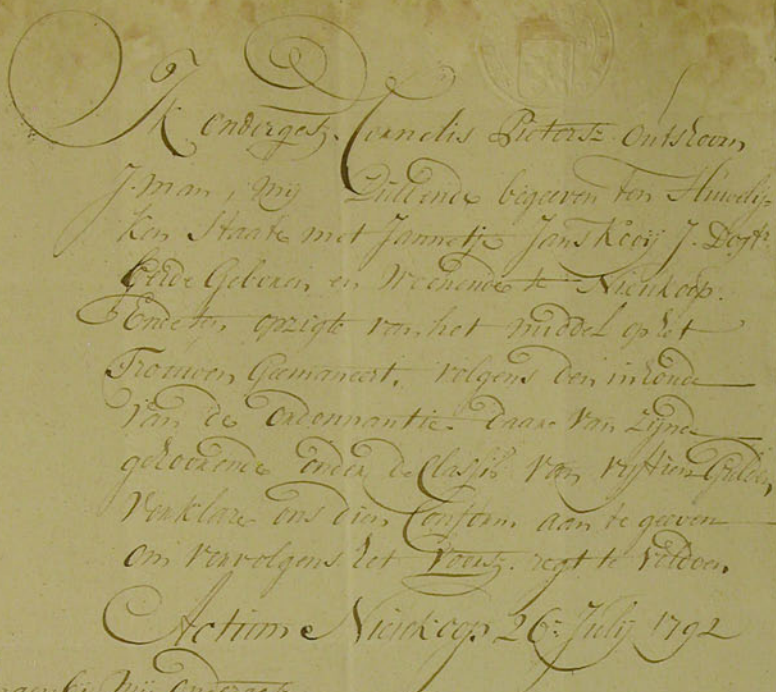 Ik ondergesz. Cornelis Pietersz. Ontshoorn
J. man, mij Zullende begeeven ten Huwelij-
ken Staate met Jannetje Jans Kooij J. Dogtr
beide Geboren en Woonende te Nieukoop.
Ende ten opzigte van het middel op het
Trouwen Geemaneert, volgens den inhoude
van de ordonnantie daar van zijnde
gehoorende onder de Classis van vijftien Gulden
verklare ons dien Conform aan te geeven
om vervolgens het voorsz. regt te voldoen
Actum Nieukoop 26: Julij 1792
mij ondergesz.